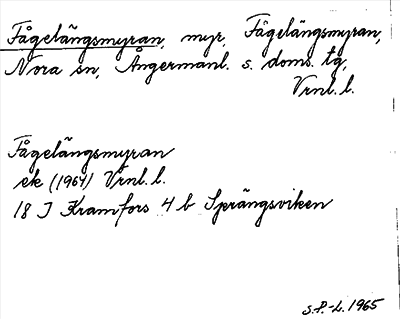 Fågelängsmyran, myr, Fågelängsmyran,
Nora sn, Ångermanl. s. doms. tg,
Vrnl. l.
Fågelängsmyran
ek (1964) Vrnl. l.
18 J Kramfors 4 b Sprängsviken
S.P.-L. 1965